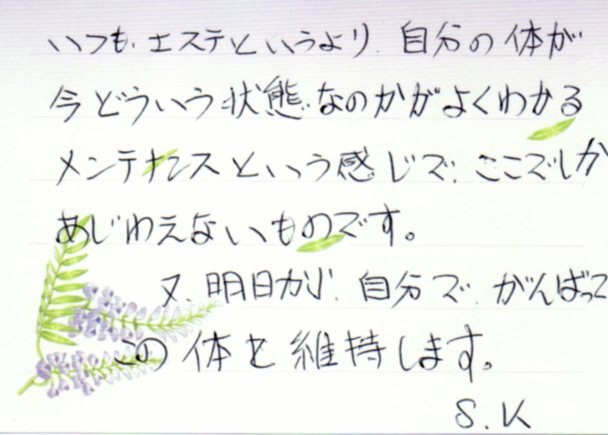 いつも、エステというより、自分の体が
今どういう状態なのかがよくわかる
メンテナンスという感じで、ここでしか
あじわえないものです。
又、明日から、自分で、がんばって
この体を維持します。
S.K